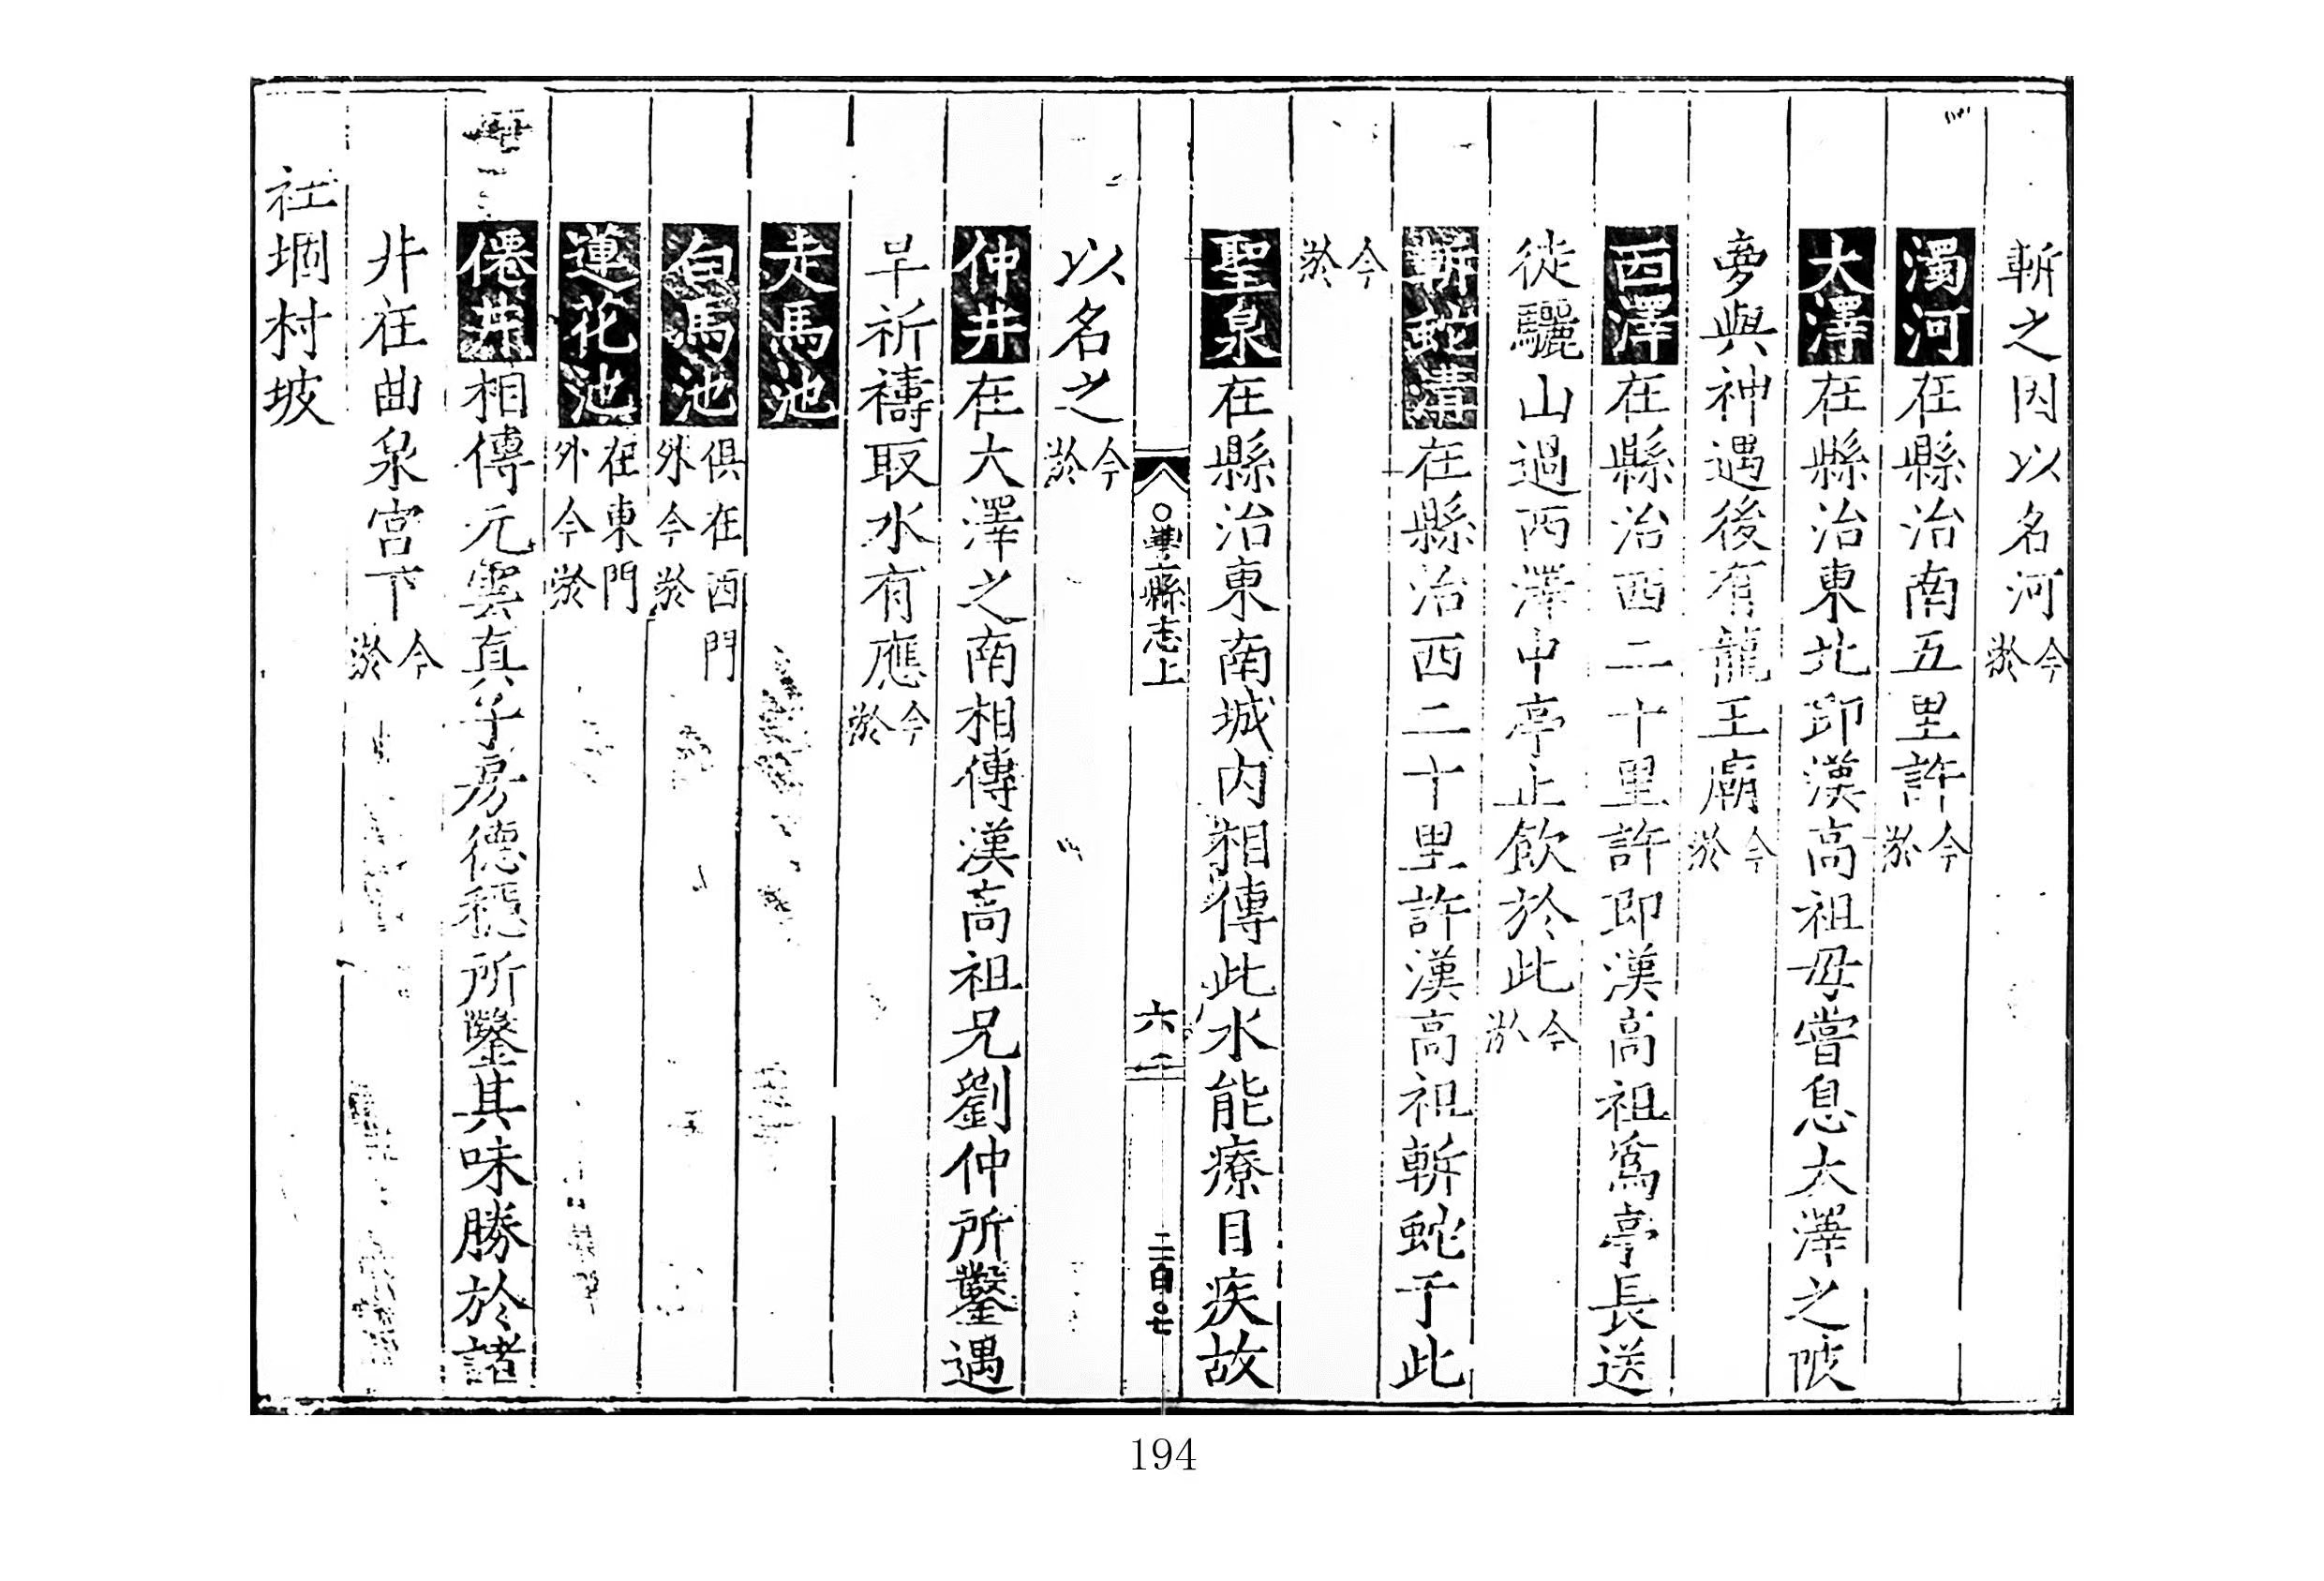 斬之因以名河今淤
濁河在縣治南五里許今淤
大澤在縣治東北即漢高祖母嘗息大澤之陂
夢與神遇後有龍王廟今淤
西澤在縣治西二十里許即漢高祖爲亭長送
徒驪山過西澤中亭止飲於此今淤
斬蛇溝在縣治西二十里許漢高祖斬蛇于此
今淤
聖泉在縣治東南城内相傳此水能療目疾故
○豐縣志上
六
二百○七
以名之今淤
仲井在大澤之南相傳漢高祖兄劉仲所鑿遇
旱祈禱取水有應今淤
走馬池
白馬池俱在西門外今淤
蓮花池在東門外今淤
僊井相傳元雲真子房德穩所鑿其味勝於諸
井在曲泉宮下今淤
社堌村坡
194